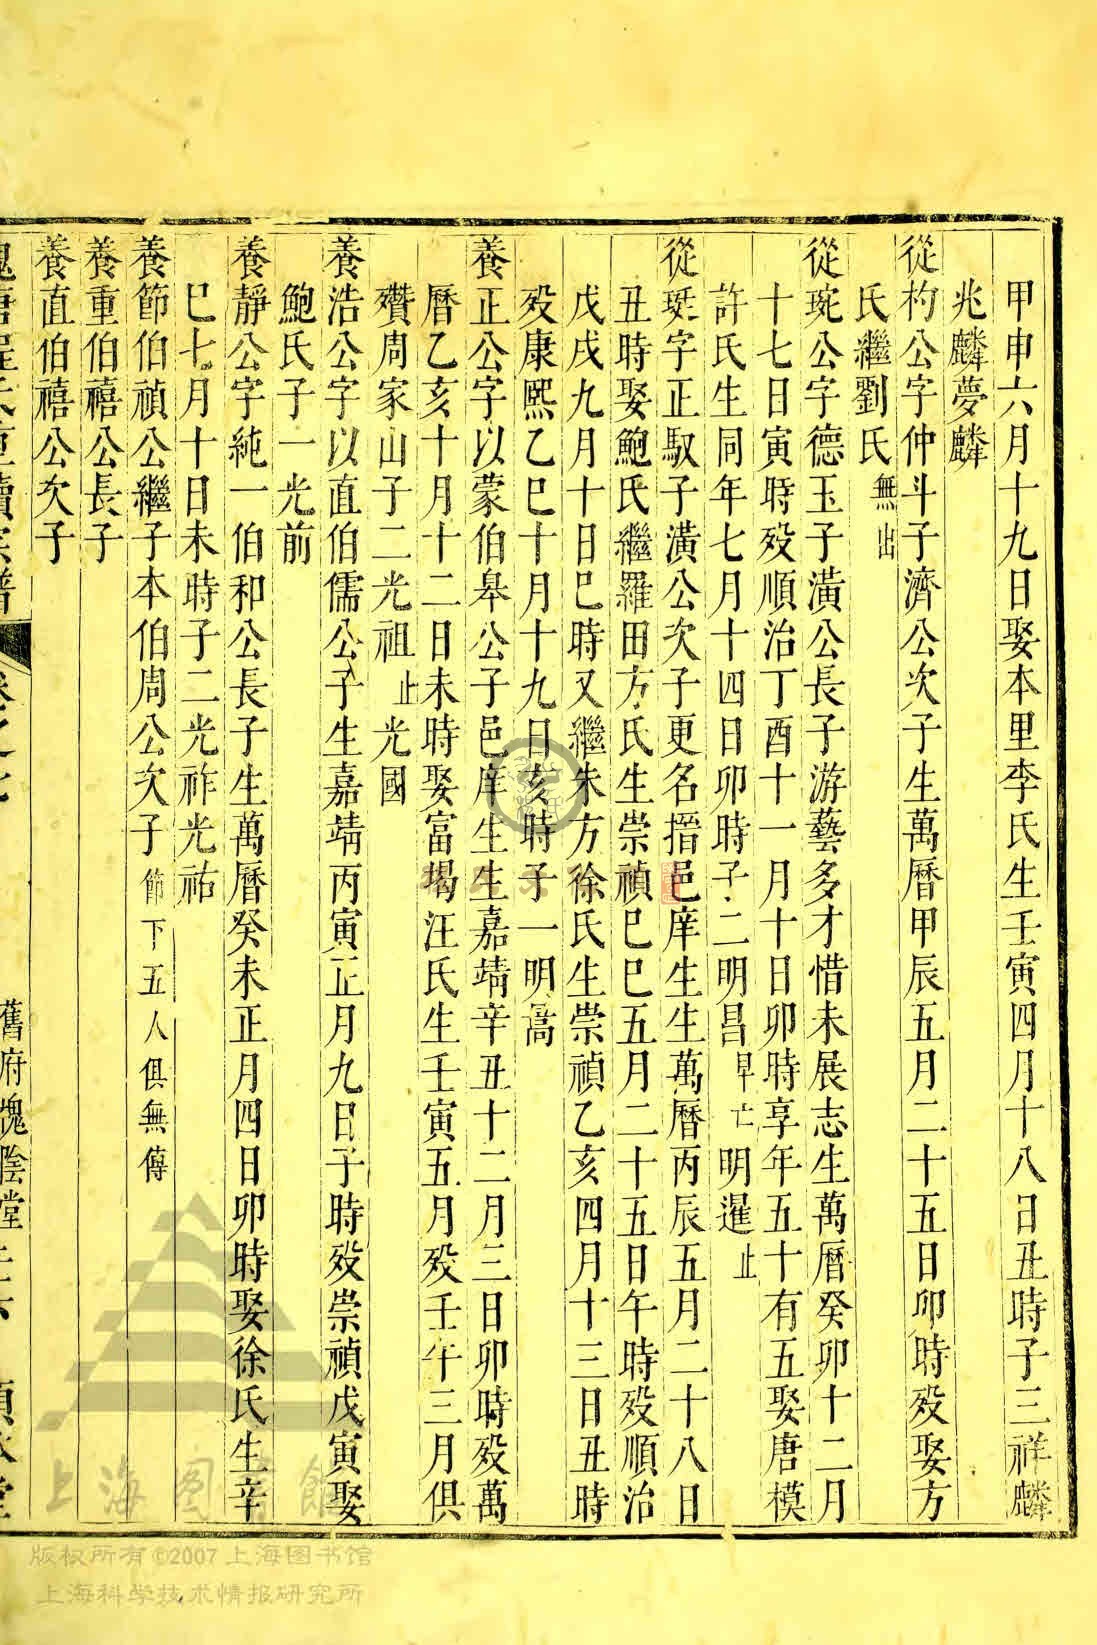 甲申六月十九日娶本里李氏生壬寅四月十八日丑時子三祥麟
兆麟夢麟
從杓公字仲斗子濟公次子生萬曆甲辰五月二十五日卯時歿娶方
氏繼劉氏無出
從琬公字德玉子潢公長子游藝多才惜未展志生萬曆癸卯十二月
十七日寅時歿順治丁酉十一月十日卯時享年五十有五娶唐模
許氏生同年七月十四日卯時子二明昌早亡明暹止
從珽字正馭子潢公次子更名搢邑庠生生萬曆丙辰五月二十八日
丑時娶鮑氏繼羅田方氏生崇禎巳巳五月二十五日午時歿順治
戊戌九月十日巳時又繼朱方徐氏生崇禎乙亥四月十三日丑時
歿康熙乙巳十月十九日亥時子一明
養正公字以蒙伯皋公子邑庠生生嘉靖辛丑十二月三日卯時歿萬
曆乙亥十月十二日未時娶富堨汪氏生壬寅五月歿壬午三月俱
殯周家山子二光祖止光國
養浩公字以直伯儒公子生嘉靖丙寅正月九日子時歿崇禎戊寅娶
鮑氏子一光前
養靜公字純一伯和公長子生萬曆癸未正月四日卯時娶徐氏生辛
巳七月十日未時子二光祚光祐
養節伯禎公繼子本伯周公次子節下五人俱無傳
養重伯禧公長子
養直伯禧公次子
舊府槐陰堂
上海图书館
版权所有©2007上海图书馆
上海科学技术情报研究所